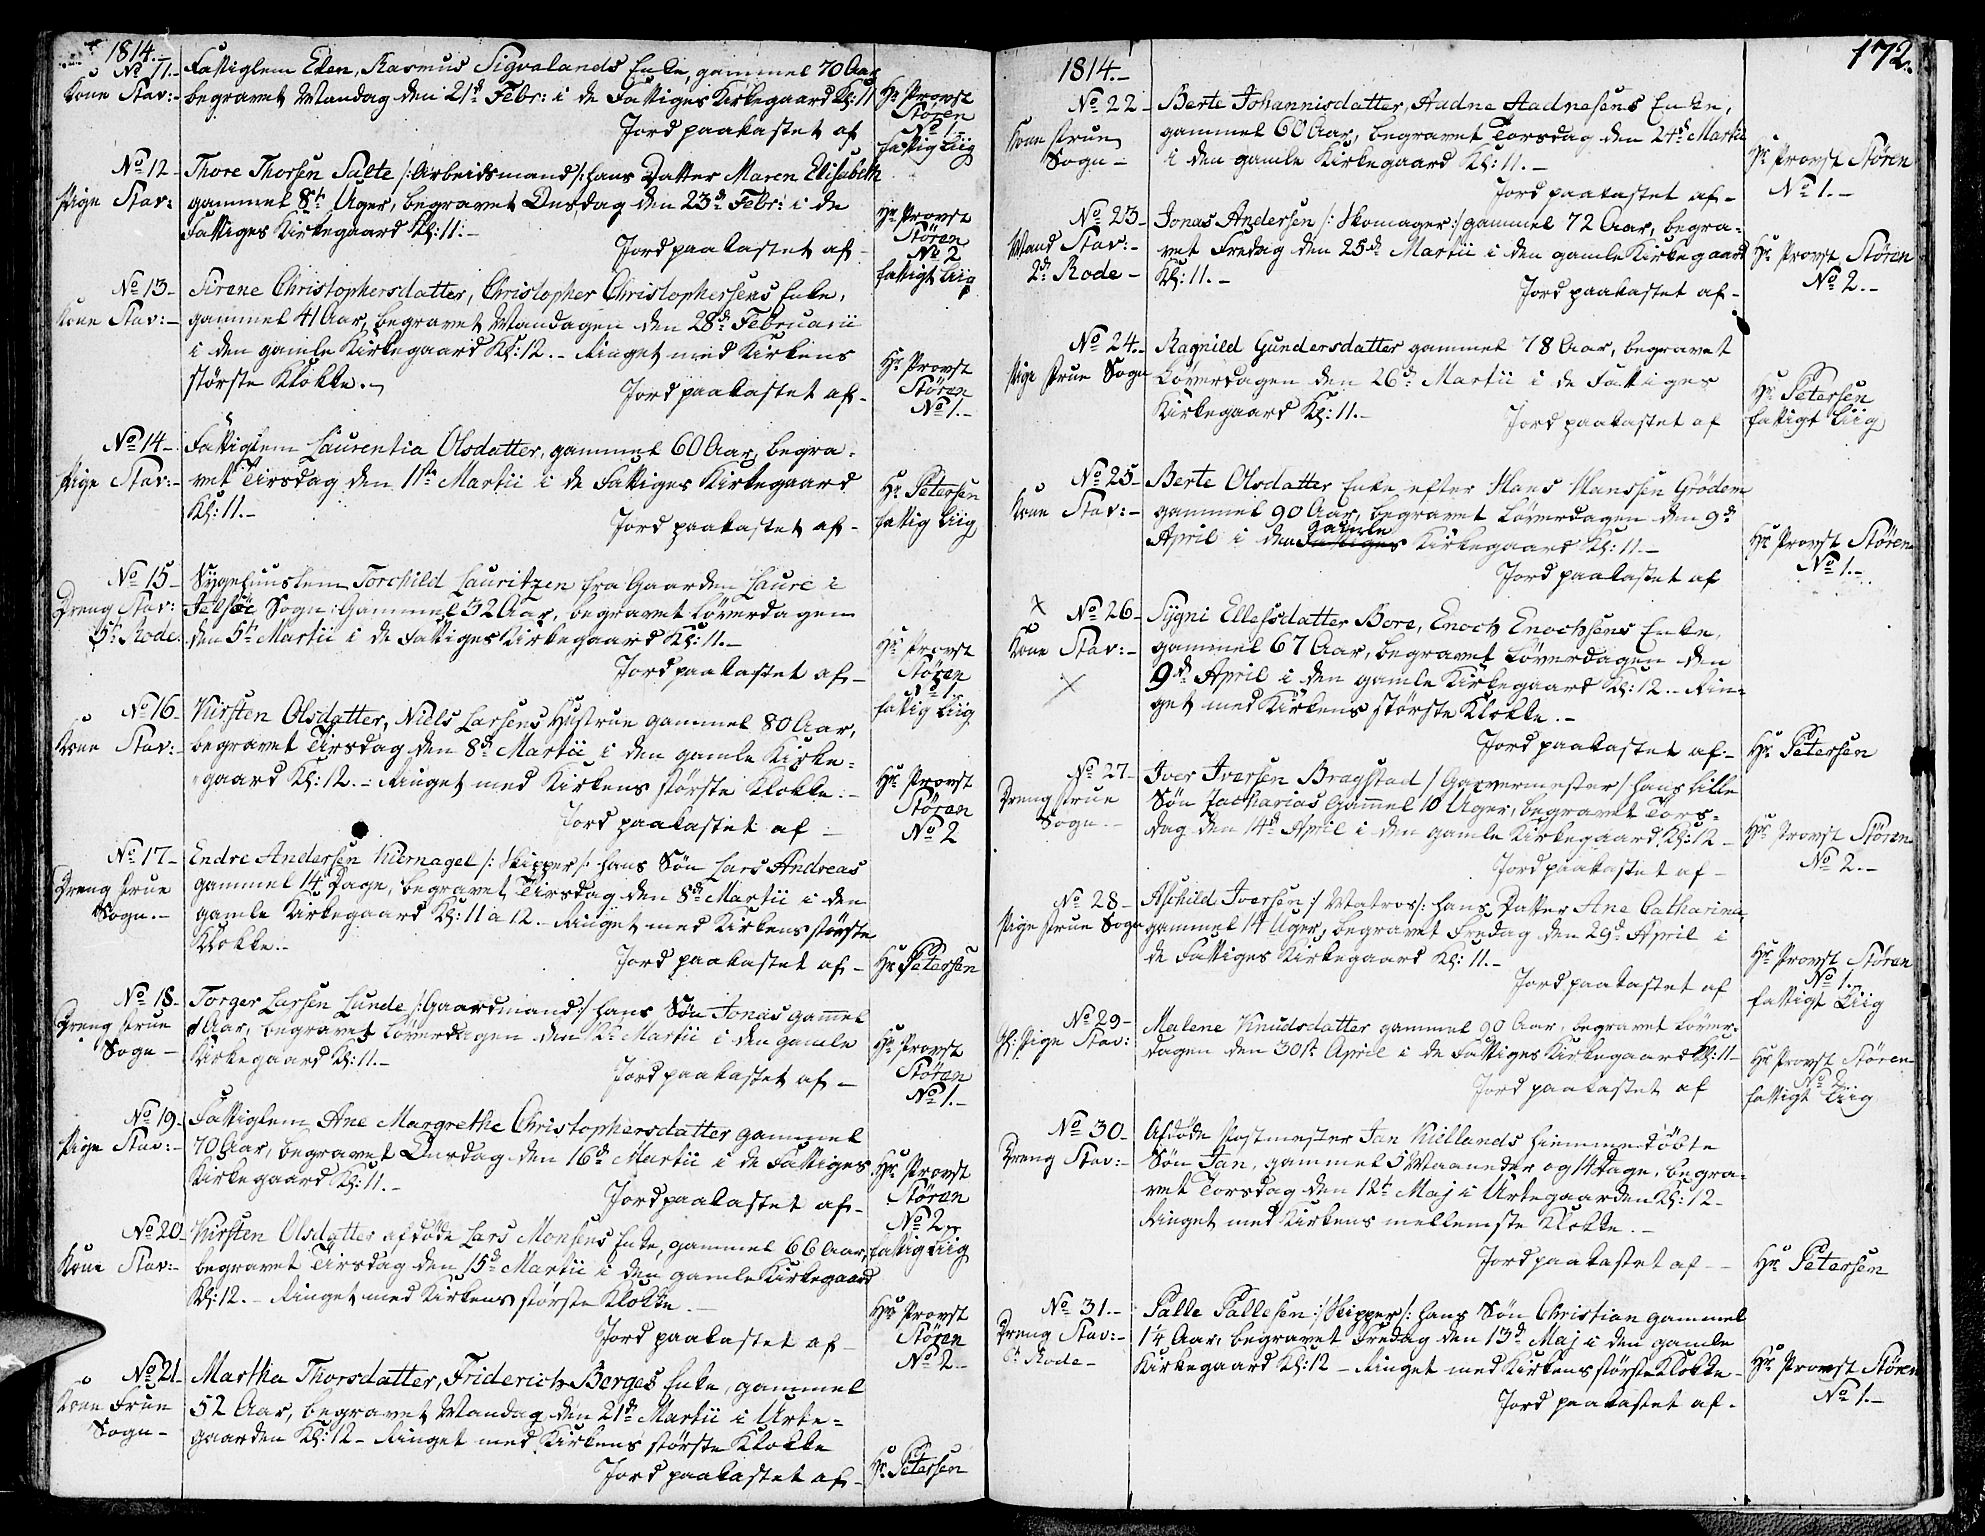 1814.-
No 11.- Fattiglem Elen, Rasmus Sigvalands Enke, gammel 70 Aar
Kone Stav:- begravet Mandag den 21de Febr: i de Fattiges Kirkegaard Kl: 11
Jord paakastet af
Hr Provst
Støren
No 1.-
fattig Liig
No 12- Thore Thorsen Salte /: Arbeidsmand :/ hans Datter Maren Elisabeth
Pige Stav: gammel 8te Uger, begravet Onsdag den 23de Febr: i de
Fattiges Kirkegaard Kl: 11.-
Jord paakastet af-
Hr Provst
Støren
No 2
fattigt Liig
No 13- Sirene Christophersdatter, Christopher Christophersens Enke,
Kone Stav:- gammel 41 Aar, begravet Mandagen den 28de Februarii
i den gamle Kirkegaard Kl: 12.- Ringet med Kirkens
største Klokke.-
Jord paakastet af-
Hr Provst
Støren
No 1.-
No 14- Fattiglem Laurentia Olsdatter, gammel 60 Aar, begra-
Pige Stav:- vet Tirsdag den 1ste Martii i de Fattiges Kirkegaard
Kl: 11.-
Jord paakastet af-
Hr Petersen
fattig Liig
No 15- Sygehuuslem Torchild Lauritzen fra Gaarden Laure i
Dreng Stav: Jelsøe Sogn: Gammel 32 Aar, begravet Løverdagen
5t Rode. den 5te Martii i de Fattiges Kirkegaard Kl: 11.-
Jord paakastet af-
Hr Provst
Støren
No 1.
fattig Liig
No 16- Kirsten Olsdatter, Niels Larsens Hustrue gammel 80 Aar,
Kone Stav:- begravet Tirsdag den 8de Martii i den gamle Kirke-
gaard Kl: 12.- Ringet med Kirkens største Klokke.-
Jord paakastet af
Hr Provst
Støren
No 2
No 17- Endre Andersen Kiernagel /: Skipper /: hans Søn Lars Andreas
Dreng Frue gammel 14 Dage, begravet Tirsdag den 8de Martii i den
Sogn.- gamle Kirkegaard Kl: 11 a 12.- Ringet med Kirkens største
Klokke.-
Jord paakastet af-
Hr Petersen
No 18- Torger Larsen Lunde /: Gaardmand :/ hans Søn Jonas gamel
Dreng Frue Aar, begravet Løverdagen den 12te Martii i den gamle
Sogn- Kirkegaard Kl: 11.-
Jord paakastet af-
Hr Provst
Støren
No 1.-
No 19- Fattiglem Ane Margrethe Christophersdatter gammel
Pige Stav:- 70 Aar, begravet Onsdag den 16de Martii i de Fattiges
Kirkegaard Kl: 11.-
Jord paakastet af-
Hr Provst
Støren
No 2.
fattig Liig
No 20 Kirsten Olsdatter afdøde Lars Monsens Enke, gammel 66 Aar,
Kone Stav:- begravet Tirsdag den 15de Martii i den gamle Kirkegaard
Kl: 12.- Ringet med Kirkens største Klokke.-
Jord paakastet af-
Hr Provst
Støren
No 2-
No 21- Martha Thorsdatter, Friderich Berges Enke, gammel
Kone Frue 52 Aar, begravet Mandag den 21de Martii i Urte-
Sogn- gaarden Kl: 12- Ringet med Kirkens største Klokke
Jord paakastet af-
Hr Petersen
172.
1814.-
No 22- Berte Johannisdatter, Aadne Aadnesens Enke,
Kone Frue gammel 60 Aar, begravet Torsdag den 24de Martii
Sogn- i den gamle Kirkegaard Kl: 11.-
Jord paakastet af-
Hr Provst Støren
No 1.-
No 23- Jonas Andersen /: Skomager :/ gammel 72 Aar, begra-
Mand Stav:- vet Fredag den 25de Martii i den gamle Kirkegaard
2de Rode- Kl: 11.-
Jord paakastet af-
Hr Provst Støren
No 2.-
No 24.- Ragnild Gundersdatter gammel 78 Aar, begravet
Pige Frue Sogn Løverdagen den 26de Martii i de Fattiges
Kirkegaard Kl: 11.-
Jord paakastet af
Hr Petersen
fattigt Liig
No 25- Berte Olsdatter Enke efter Hans Hanssen Grødem
Kone Stav:- gammel 90 Aar, begravet Løverdagen den 9de
gamle
April i den Fattiges Kirkegaard Kl: 11.-
Jord paakastet af
Hr Provst Støren
No 1.-
x No 26- Sygni Ellefsdatter Bore, Enoch Enochsens Enke,
Kone Stav:- gammel 67 Aar, begravet Løverdagen den
x 9de April i den gamle Kirkegaard Kl: 12.- Rin-
get med Kirkens største Klokke.-
Jord paakastet af-
Hr Petersen
No 27- Iver Iversen Bragstad / Garvermester / hans lille
Dreng Frue Søn Zacharias Gamel 10 Uger, begravet Tors-
Sogn- dag den 14de April i den gamle Kirkegaard, Kl: 12-
Jord paakastet af-
Hr Provst Støren
No 2.-
No 28- Aschild Iversen :/ Matros /: hans Datter Ane Catharina
Pige Frue Sogn gammel 14 Uger, begravet Fredag den 29de April i
de Fattiges Kirkegaard Kl: 11.-
Jord paakastet af
Hr Provst Støren
No 1.-
fattigt Liig
No 29- Malene Knudsdatter gammel 90 Aar, begravet Løver-
Pige Stav: dagen den 30te April i de Fattiges Kirkegaard Kl: 11-
Jord paakastet af
Hr Provst Støren
No 2
fattigt Liig
No 30- Afdøde Postmester Jan Kiellands hiemmedøbte
Dreng Stav:- Søn Jan, gammel 5 Maaneder og 14 Dage, begra-
vet Torsdag den 12te Maj i Urtegaarden Kl: 12-
Ringet med Kirkens mellemste Klokke.-
Jord paakastet af-
Hr Petersen
No 31.- Palle Pallesen :/ Skipper /: hans Søn Christian gammel
Dreng Stav:- 1¼ Aar, begravet Fredag den 13de Maj i den gamle
6t Rode- Kirkegaard Kl: 12- Ringet med Kirkens største Klokke-
Jord paakastet af-
Hr Provst Støren
No 1.-